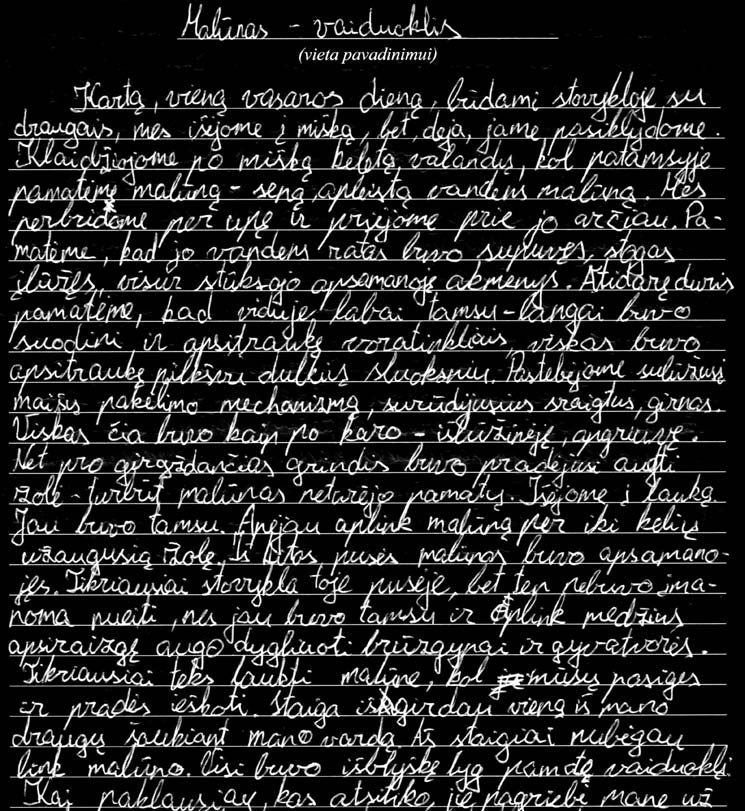 Malūnas - vaiduoklis
(vieta pavadinimui)
Kartą, vieną vasaros dieną, būdami stovykloje su
draugais, mes išėjome į mišką, bet, deja, jame pasiklydome.
Klaidžiojome po mišką keletą valandų, kol patamsyje
pamatėme malūną - seną, apleistą vandens malūną. Mes
perbridome per upę ir priėjome prie jo arčiau. Pa-
matėme, kad jo vandens ratas buvo supuvęs, stogas
įlūžęs, visur stūksojo apsamanoję akmenys. Atidarę duris
pamatėme, kad viduje labai tamsu - langai buvo
suodini ir apsitraukę voratinkliais, viskas buvo
apsitraukę pilkšvu dulkių sluoksniu. Pastebėjome sulūžusį
maišų pakėlimo mechanizmą, surūdijusius sraigtus, girnas.
Viskas čia buvo kaip po karo - išlūžinėję, apgriuvę.
Net pro girgždančias grindis buvo pradėjusi augti
žolė - turbūt malūnas neturėjo pamatų. Išėjome į lauką.
Jau buvo tamsu. Apėjau aplink malūną per iki kelių
užaugusią žolę. Iš kitos pusės malūnas buvo apsamano-
jęs. Tikriausiai stovykla toje pusėje, bet ten nebuvo įma-
noma nueiti, nes jau buvo tamsu ir aplink medžius
apsiraizgę augo dygliuoti brūzgynai ir gyvatvorės.
Tikriausiai teks laukti malūne, kol mūsų pasiges
ir pradės ieškoti. Staiga išgirdau vieną iš mano
draugų šaukiant mano vardą. Aš staigiai nubėgau
link malūno. Visi buvo išblyškę lyg pamatę vaiduoklį.
Kai paklausiau, kas atsitiko, jie pagriebė mane už